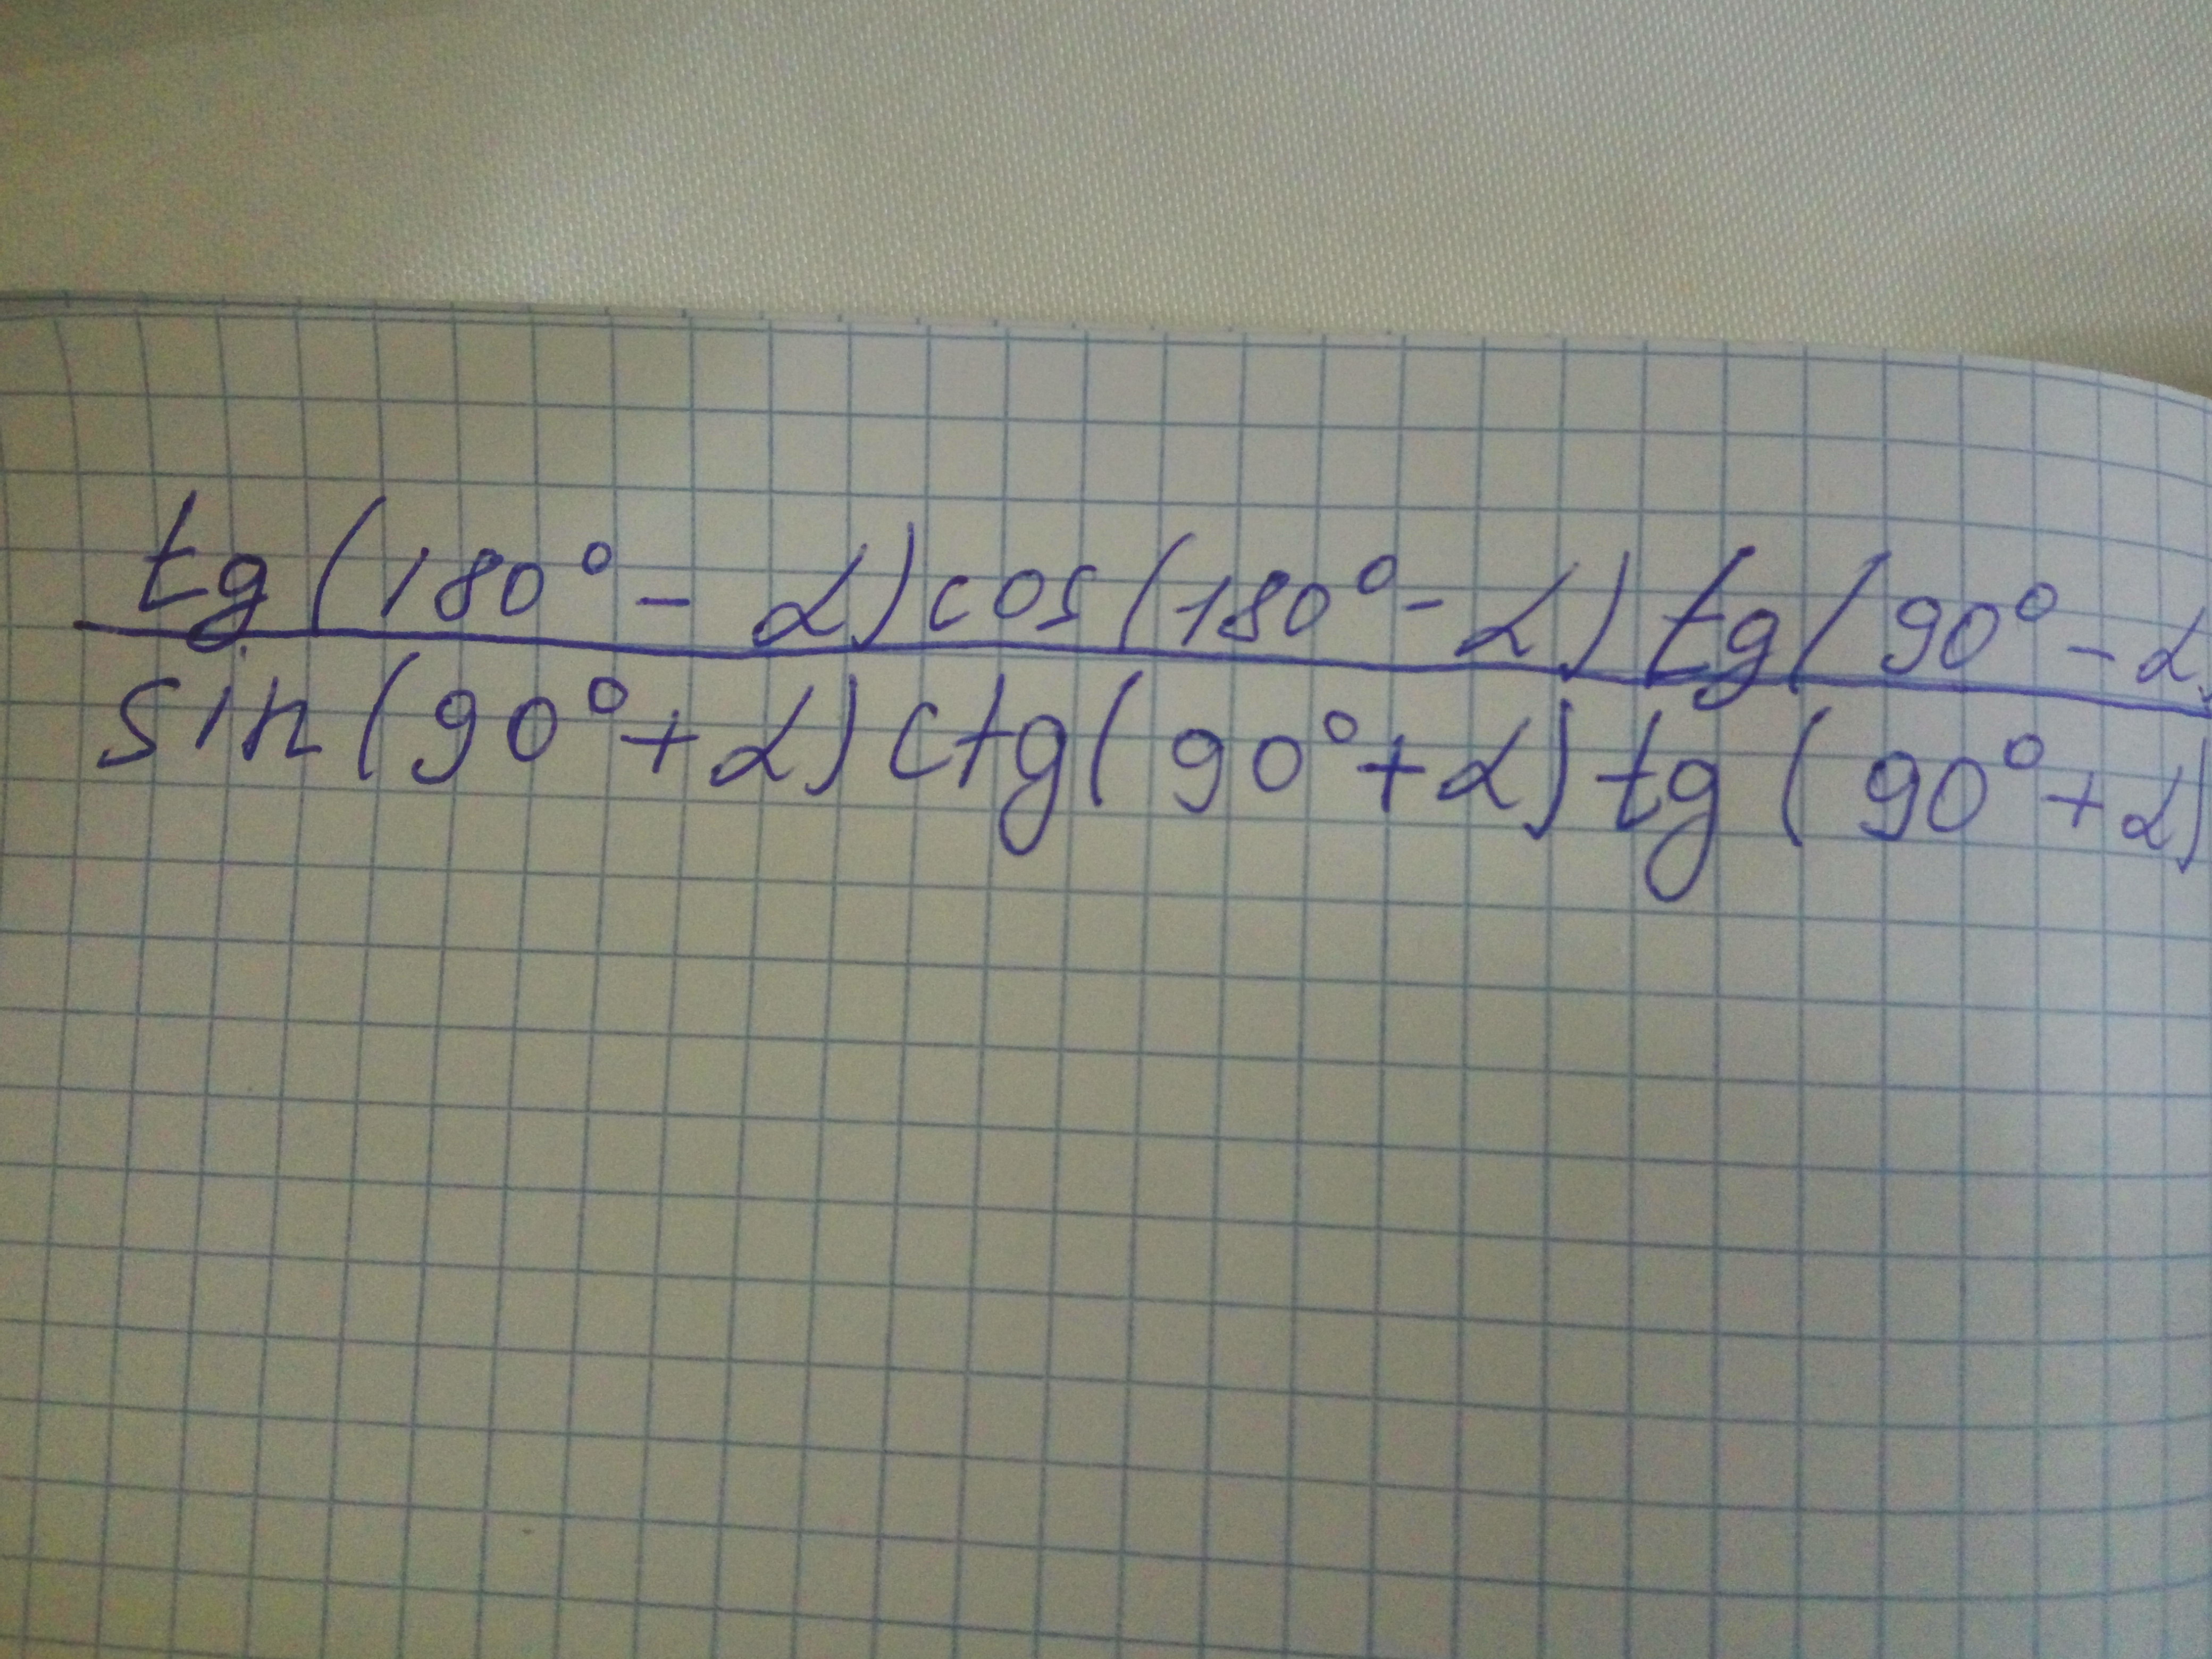 tg(180°- α)cos(180°- α)tg(90°-α
sin(90°+α)ctg(90°+α)tg(90°+α)